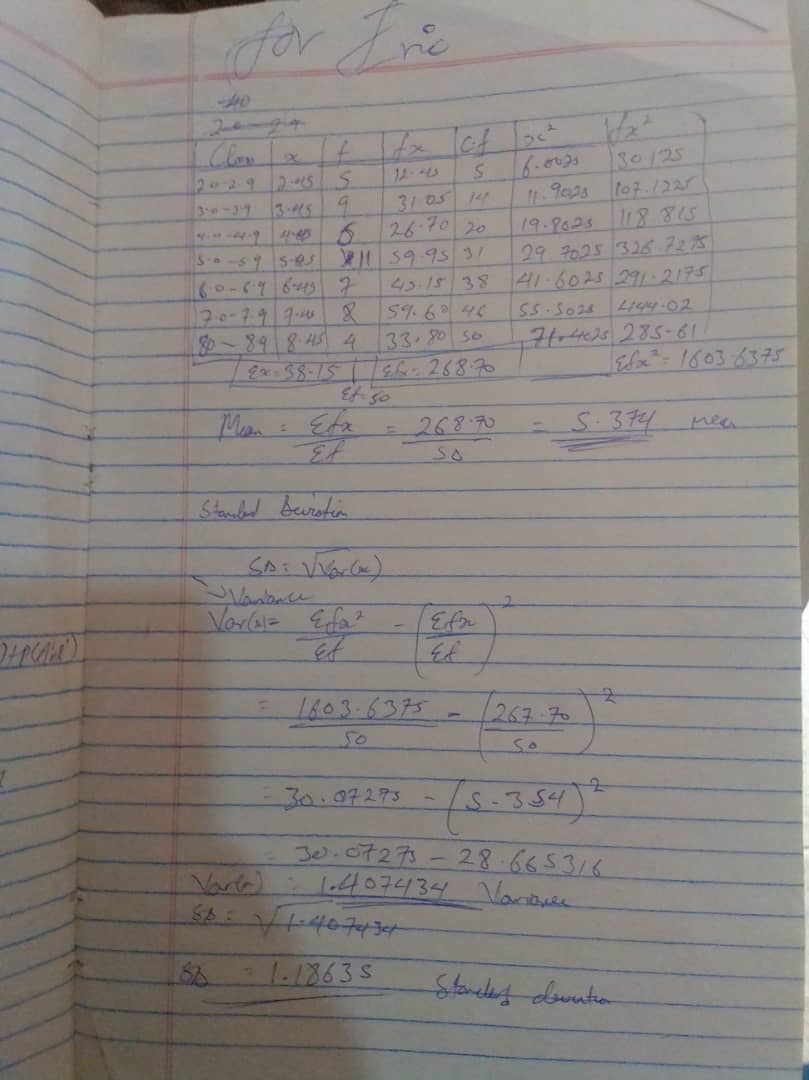 for Eric
40
2.0 - 2.9
Class x f fx C.f x² fx²
2.0-2.9 2.45 5 12.45 5 6.0025 30.125
3.0-3.9 3.45 9 31.05 14 11.9025 107.1225
4.0-4.9 4.45 6 26.70 20 19.8025 118.815
5.0-5.9 5.45 11 59.95 31 29.7025 326.7275
6.0-6.9 6.45 7 45.15 38 41.6025 291.2175
7.0-7.9 7.45 8 59.60 46 55.5025 444.02
80-89 8.45 4 33.80 50 71.4025 285.61
Σx=38.15 Σfx=268.70 Σfx²=1603.6375
Σf=50
Mean = Σfx/Σf = 268.70/50 = 5.374
Standard Deviation
SD = √Var(x)
Variance
Var(x) = Σfx²/Σf - (Σfx/Σf)²
)+P(A∩B')
= 1603.6375/50 - (267.70/50)²
= 30.07275 - (5.354)²
= 30.07275 - 28.665316
Var(x) = 1.407434 Variance
SD = √1.407434
SD = 1.18635 Standard deviation